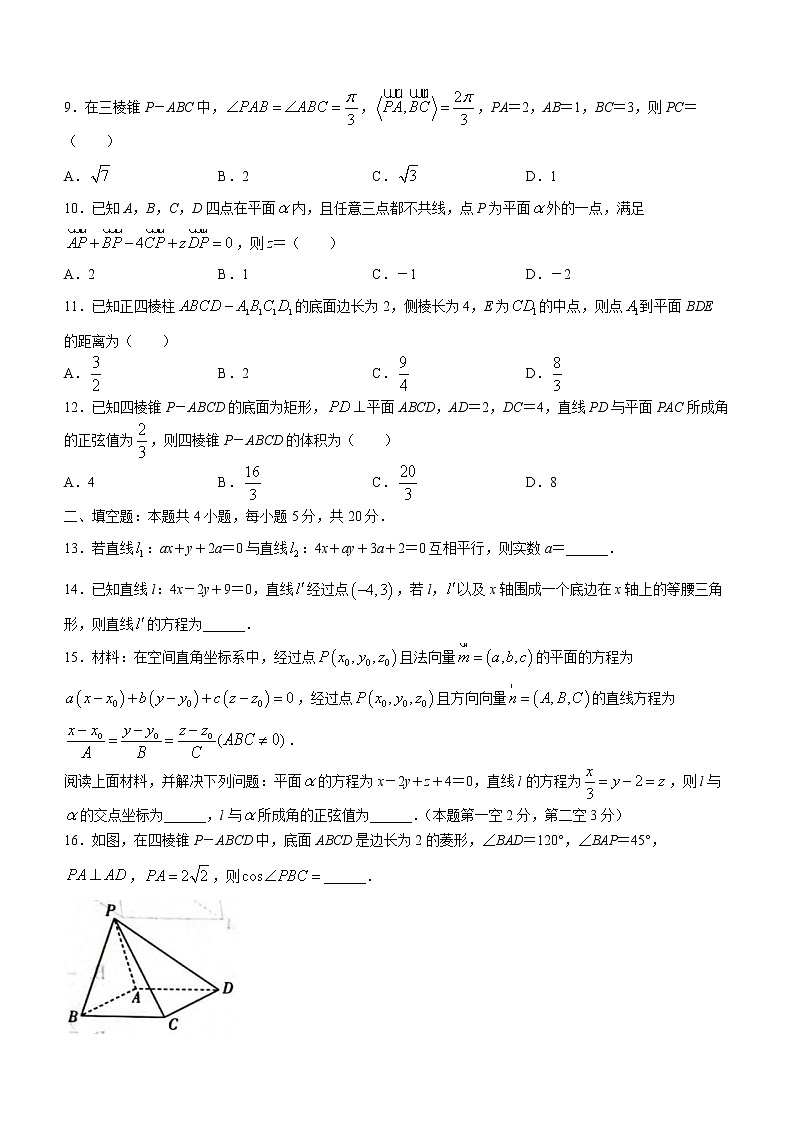 9．在三棱锥 P－ABC 中，∠PAB＝∠ABC＝π/3，⟨PA,BC⟩＝2π/3，PA＝2，AB＝1，BC＝3，则 PC＝
（　　）
A．√7　B．2　C．√3　D．1
10．已知 A，B，C，D 四点在平面α内，且任意三点都不共线，点 P 为平面α外的一点，满足
AP＋BP－4CP＋zDP＝0，则 z＝（　　）
A．2　B．1　C．－1　D．－2
11．已知正四棱柱 ABCD－A₁B₁C₁D₁的底面边长为 2，侧棱长为 4，E 为CD₁的中点，则点A₁到平面 BDE
的距离为（　　）
A．3/2　B．2　C．9/4　D．8/3
12．已知四棱锥 P－ABCD 的底面为矩形，PD⊥平面 ABCD，AD＝2，DC＝4，直线 PD 与平面 PAC 所成角
的正弦值为2/3，则四棱锥 P－ABCD 的体积为（　　）
A．4　B．16/3　C．20/3　D．8
二、填空题：本题共 4 小题，每小题 5 分，共 20 分．
13．若直线l₁：ax＋y＋2a＝0 与直线l₂：4x＋ay＋3a＋2＝0 互相平行，则实数 a＝______．
14．已知直线 l：4x－2y＋9＝0，直线l′经过点(−4,3)，若 l，l′以及 x 轴围成一个底边在 x 轴上的等腰三角
形，则直线l′的方程为______．
15．材料：在空间直角坐标系中，经过点P(x₀,y₀,z₀)且法向量m＝(a,b,c)的平面的方程为
a(x−x₀)+b(y−y₀)+c(z−z₀)＝0，经过点P(x₀,y₀,z₀)且方向向量n＝(A,B,C)的直线方程为
(x−x₀)/A＝(y−y₀)/B＝(z−z₀)/C(ABC≠0)．
阅读上面材料，并解决下列问题：平面α的方程为 x－2y＋z＋4＝0，直线 l 的方程为x/3＝y－2＝z，则 l 与
α的交点坐标为______，l 与α所成角的正弦值为______．（本题第一空 2 分，第二空 3 分）
16．如图，在四棱锥 P－ABCD 中，底面 ABCD 是边长为 2 的菱形，∠BAD＝120°，∠BAP＝45°，
PA⊥AD，PA＝2√2，则cos∠PBC＝______．
P
A
D
B
C